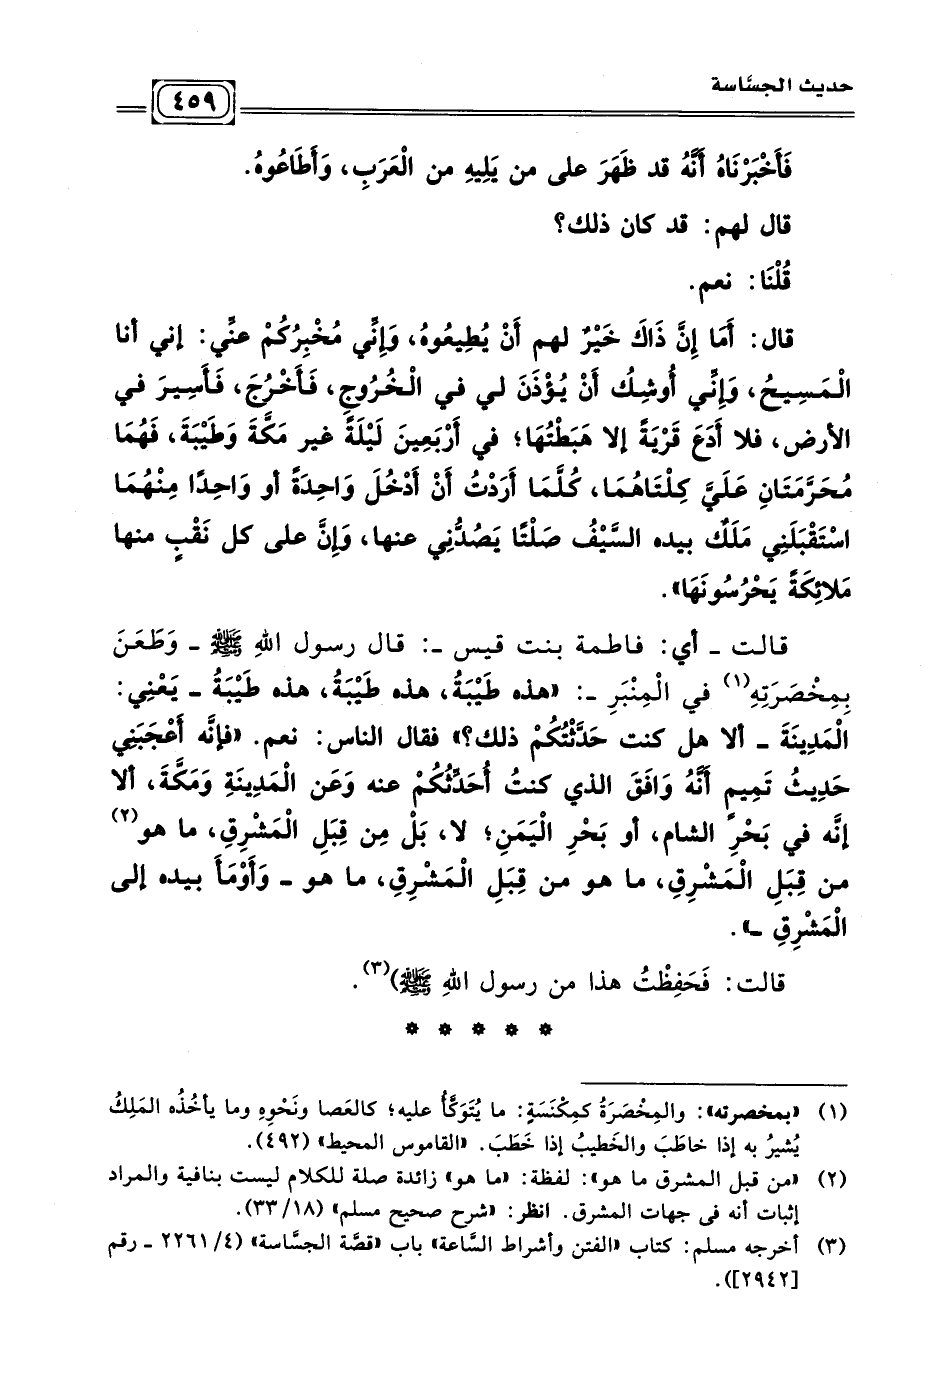 حديث الجسَّاسة
٤٥٩
فَأَخْبَرْنَاهُ أَنَّهُ قد ظَهَرَ على من يَلِيهِ من الْعَرَبِ، وَأَطَاعُوهُ.
قال لهم: قد كان ذلك؟
قُلْنَا: نعم.
قال: أَمَا إِنَّ ذَاكَ خَيْرٌ لهم أَنْ يُطِيعُوهُ، وَإِنِّي مُخْبِرُكُمْ عنِّي: إني أنا
الْمَسِيحُ، وَإِنِّي أُوشِكُ أَنْ يُؤْذَنَ لي في الْخُرُوجِ، فَأَخْرُجَ، فَأَسِيرَ في
الأرض، فلا أَدَعَ قَرْيَةً إلا هَبَطْتُهَا؛ في أَرْبَعِينَ لَيْلَةً غير مَكَّةَ وَطَيْبَةَ، فَهُمَا
مُحَرَّمَتَانِ عَلَيَّ كِلْتَاهُمَا، كُلَّمَا أَرَدْتُ أَنْ أَدْخُلَ وَاحِدَةً أو وَاحِدًا مِنْهُمَا
اسْتَقْبَلَنِي مَلَكٌ بيده السَّيْفُ صَلْتًا يَصُدُّنِي عنها، وَإِنَّ على كل نَقْبٍ منها
مَلائِكَةً يَحْرُسُونَهَا».
قالت ـ أي: فاطمة بنت قيس ـ: قال رسول اللهِ ﷺ ـ وَطَعَنَ
بِمِخْصَرَتِهِ(١) في الْمِنْبَرِ ـ: «هذه طَيْبَةُ، هذه طَيْبَةُ، هذه طَيْبَةُ ـ يَعْنِي:
الْمَدِينَةَ ـ ألا هل كنت حَدَّثْتُكُمْ ذلك؟» فقال الناس: نعم. «فإنَّه أَعْجَبَنِي
حَدِيثُ تَمِيمٍ أَنَّهُ وَافَقَ الذي كنتُ أُحَدِّثُكُمْ عنه وَعَن الْمَدِينَةِ وَمَكَّةَ، ألا
إنَّه في بَحْرِ الشام، أو بَحْرِ الْيَمَنِ؛ لا، بَلْ مِن قِبَلِ الْمَشْرِقِ، ما هو(٢)
من قِبَلِ الْمَشْرِقِ، ما هو من قِبَلِ الْمَشْرِقِ، ما هو ـ وَأَوْمَأَ بيده إلى
الْمَشْرِقِ ـ».
قالت: فَحَفِظْتُ هذا من رسول اللهِ ﷺ)(٣).
* * * * *
(١) «بمخصرته»: والمِخْصَرَةُ كمِكْنَسَةٍ: ما يُتَوَكَّأُ عليه؛ كالعَصا ونَحْوِهِ وما يأخُذُه المَلِكُ
يُشيرُ به إذا خاطَبَ والخَطيبُ إذا خَطَبَ. «القاموس المحيط» (٤٩٢).
(٢) «من قبل المشرق ما هو»: لفظة: «ما هو» زائدة صلة للكلام ليست بنافية والمراد
إثبات أنه في جهات المشرق. انظر: «شرح صحيح مسلم» (١٨/ ٣٣).
(٣) أخرجه مسلم: كتاب «الفتن وأشراط السَّاعة» باب «قصَّة الجسَّاسة» (٤/ ٢٢٦١ ـ رقم
[٢٩٤٢]).